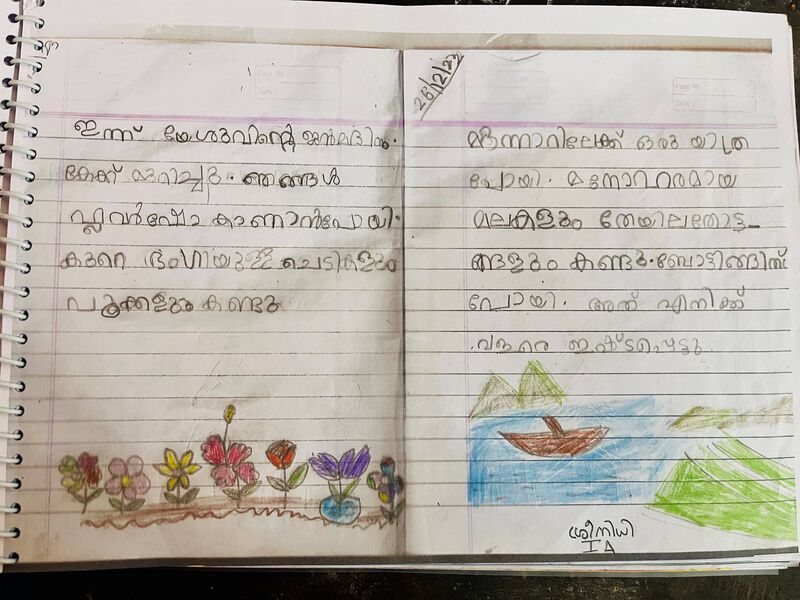 ഇന്ന് യേശുവിന്റെ ജന്മദിനം.
കേക്ക് മുറിച്ചു. ഞങ്ങൾ
ഫ്ലവർഷോ കാണാൻപോയി.
കുറെ ഭംഗിയുള്ള ചെടികളും
പൂക്കളും കണ്ടു
26/12/23
മൂന്നാറിലേക്ക് ഒരു യാത്ര
പോയി. മനോഹരമായ
മലകളും തേയിലതോട്ട
ങ്ങളും കണ്ടു. ബോട്ടിങ്ങിന്
പോയി. അത് എനിക്ക്
വളരെ ഇഷ്ടപ്പെട്ടു.
ശ്രീനിധി
I A